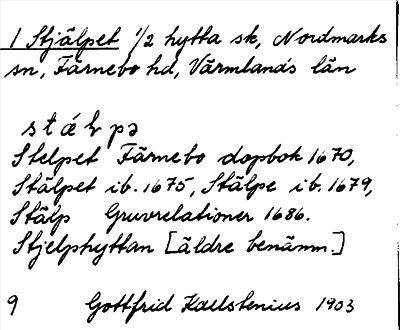 1 Stjälpet 1/2 hytta sk, Nordmarks
sn, Färnebo hd, Värmlands län
Stelpet Färnebo dopbok 1670,
Stälpet ib. 1675, Stälpe ib. 1679,
Stälp Gruvrelationer 1686.
Stjelphyttan [äldre benämn.]
9 Gottfrid Kallstenius 1903